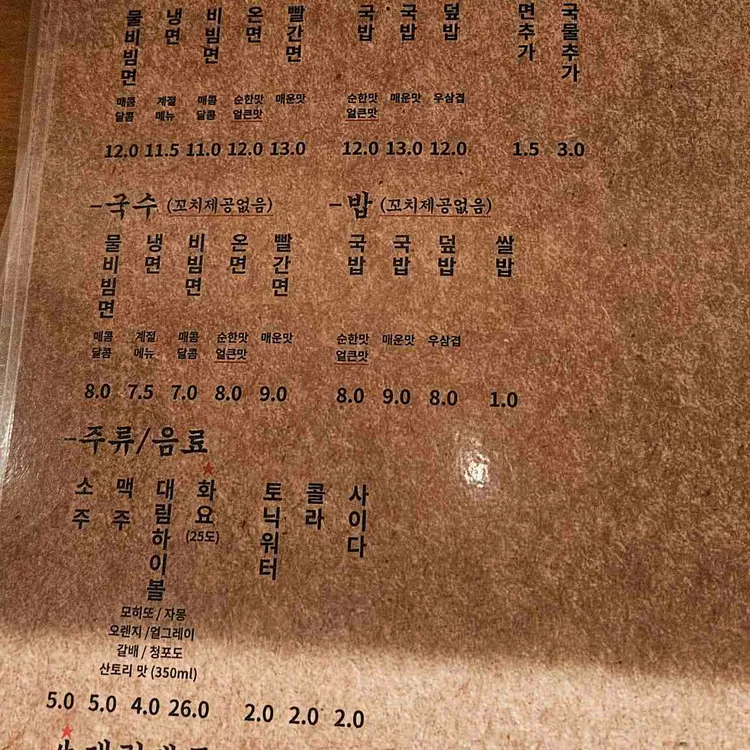 물비빔면 냉면 비빔면 온면 빨간면 국밥 국밥 덮밥 면추가 국물추가
매콤 계절 매콤 순한맛 매운맛 순한맛 매운맛 우삼겹
달콤 메뉴 달콤 얼큰맛 얼큰맛
12.0 11.5 11.0 12.0 13.0 12.0 13.0 12.0 1.5 3.0
-국수 (꼬치제공없음) -밥 (꼬치제공없음)
물비빔면 냉면 비빔면 온면 빨간면 국밥 국밥 덮밥 쌀밥
매콤 계절 매콤 순한맛 매운맛 순한맛 매운맛 우삼겹
달콤 메뉴 달콤 얼큰맛 얼큰맛
8.0 7.5 7.0 8.0 9.0 8.0 9.0 8.0 1.0
-주류/음료
소주 맥주 대림하이볼 화요 토닉워터 콜라 사이다
(25도)
모히또 / 자몽
오렌지 /얼그레이
갈배 / 청포도
산토리 맛 (350ml)
5.0 5.0 4.0 26.0 2.0 2.0 2.0